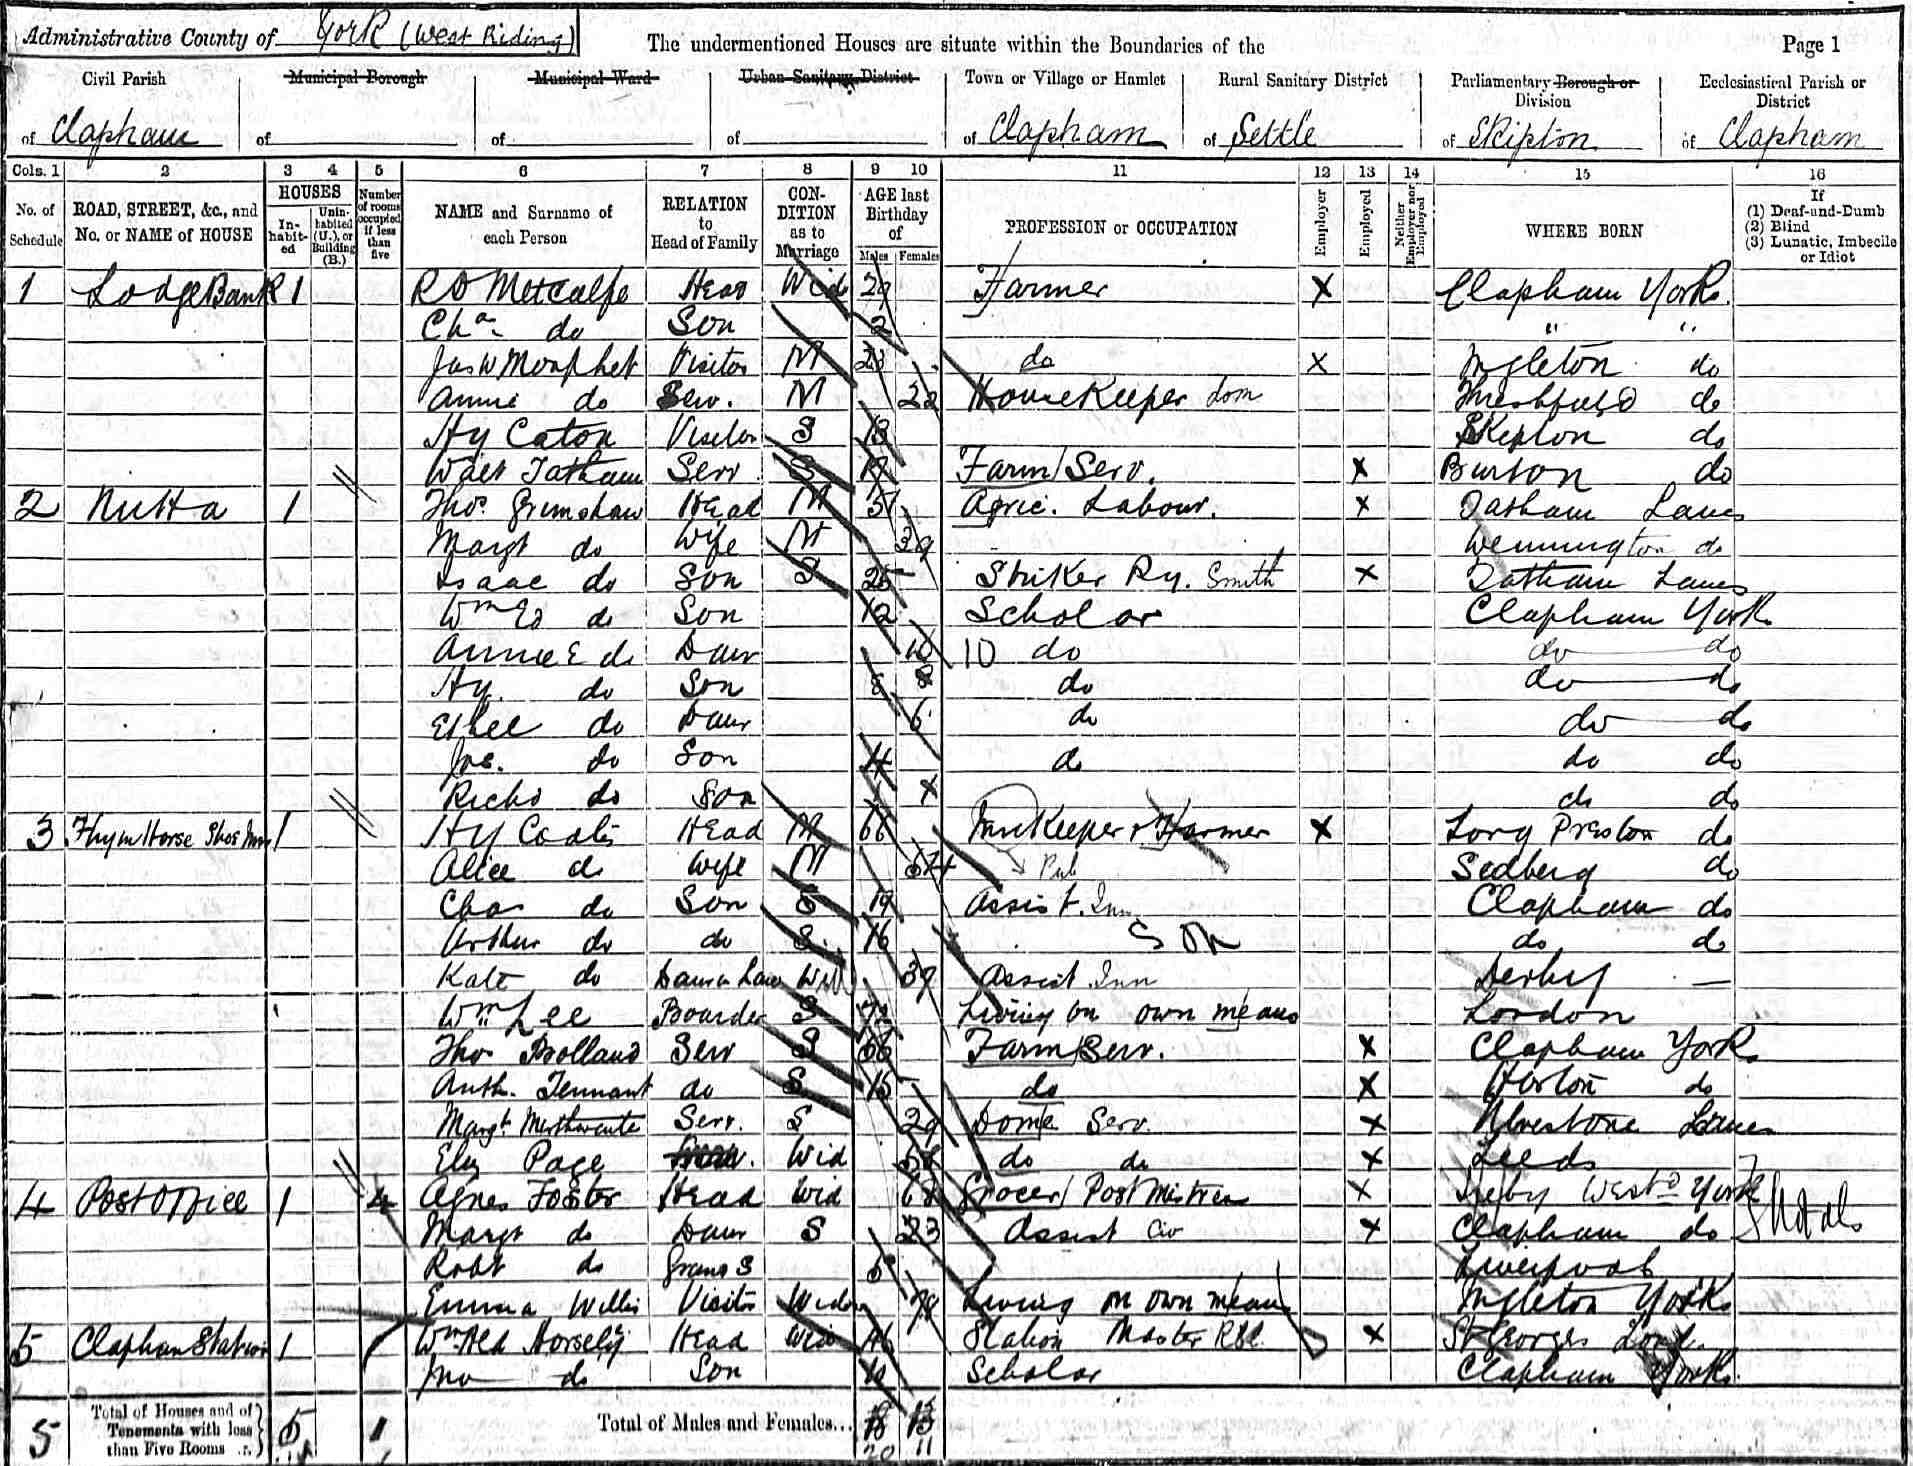 Administrative County of York (West Riding) The undermentioned Houses are situate within the Boundaries of the Page 1
Civil Parish Municipal Borough Municipal Ward Urban Sanitary District Town or Village or Hamlet Rural Sanitary District Parliamentary Borough or Division Ecclesiastical Parish or District
of Clapham of of of of Clapham of Settle of Skipton of Clapham
Cols. 1 2 3 4 5 6 7 8 9 10 11 12 13 14 15 16
No. of Schedule ROAD, STREET, &c., and No. or NAME of HOUSE HOUSES In-habit-ed Unin-habited (U.), or Building (B.) Number of rooms occupied if less than five NAME and Surname of each Person RELATION to Head of Family CON-DITION as to Marriage AGE last Birthday of Males Females PROFESSION or OCCUPATION Employer Employed Neither Employer nor Employed WHERE BORN If (1) Deaf-and-Dumb (2) Blind (3) Lunatic, Imbecile or Idiot
1 Lodge Bank 1 R D Metcalfe Head Wid 29 Farmer X Clapham Yorks
Chas do Son 2 " "
Jas W Morphet Visitor M 23 do X Ingleton do
Annie do Serv. M 22 HouseKeeper Dom Threshfield do
Hy Caton Visitor S 13 Skipton do
Walt Tatham Serv S 19 Farm Serv. X Burton do
2 Nutta 1 Thos. Grimshaw Head M 51 Agric. Labour. X Tatham Lancs
Margt do Wife M 39 Wennington do
Isaac do Son S 25 Striker Ry. Smith X Tatham Lancs
Wm Ed do Son 12 Scholar Clapham York
Annie E do Daur 10 10 do do do
Hy. do Son 8 8 do do do
Ethel do Daur 6 do do do
Jos. do Son 4 do do do
Richd do Son X do do
3 Flyin Horse Shoe Inn 1 Hy Coates Head M 66 InnKeeper & Farmer X Long Preston do
Alice do Wife M 54 Pub Sedberg do
Chas do Son S 19 Assist. Inn Clapham do
Arthur do do S 16 Son do do
Kate do Daur in Law Wid 39 Assist Inn Derby —
Wm Lee Boarder S 72 Living on own means London
Thos Bolland Serv S 56 Farm Serv. X Clapham Yorks
Anth. Tennant do S 15 do X Horton do
Margt. Serv. S 29 Dome Serv. X Ulverstone Lancs
Eliz Page Wid do do X Leeds
4 Post Office 1 4 Agnes Foster Head Wid 68 Grocer Post Mistress X Ireby Westd York
Margt do Daur S 23 Assist Civ X Clapham do
Robt do Grand S 6 Liverpool
Emma Willis Visitor Wid 78 Living on own means Ingleton Yorks
5 Clapham Station 1 Wm Ald Horsely Head Wid 46 Station Master X St Georges Lond.
Jno do Son 10 Scholar Clapham Yorks.
5 Total of Houses and of Tenements with less than Five Rooms 5 1 Total of Males and Females... 20 11